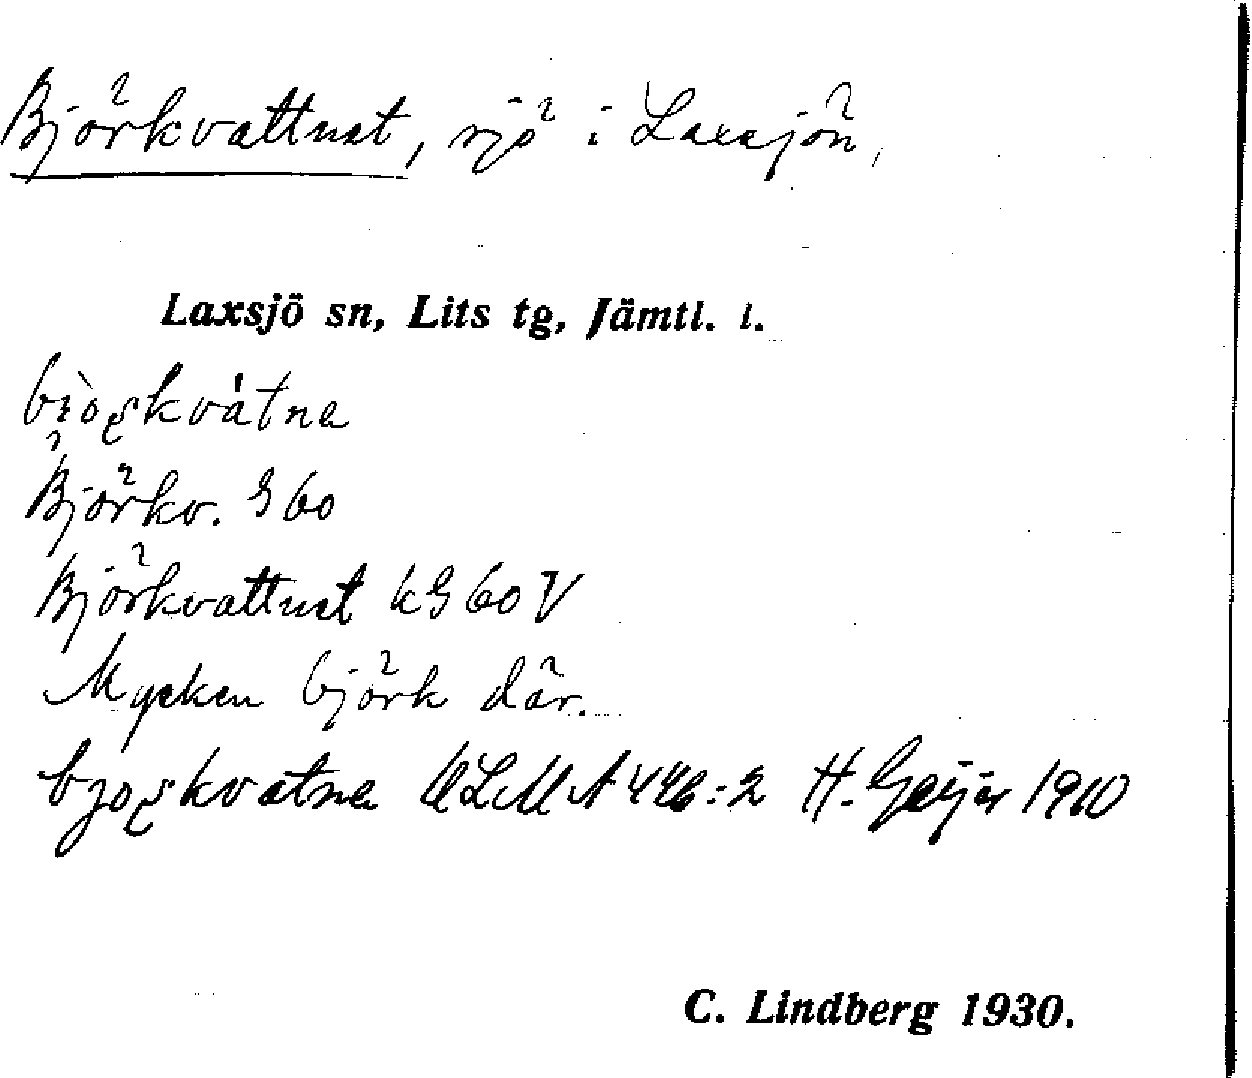 Björkvattnet, sjö i Laxsjön,
Laxsjö sn, Lits tg, Jämtl. l.
Björkv. G 60
Björkvattnet k G 60 V
Mycken björk där.
ULMA 446:2 H. Geijer 1910
C. Lindberg 1930.